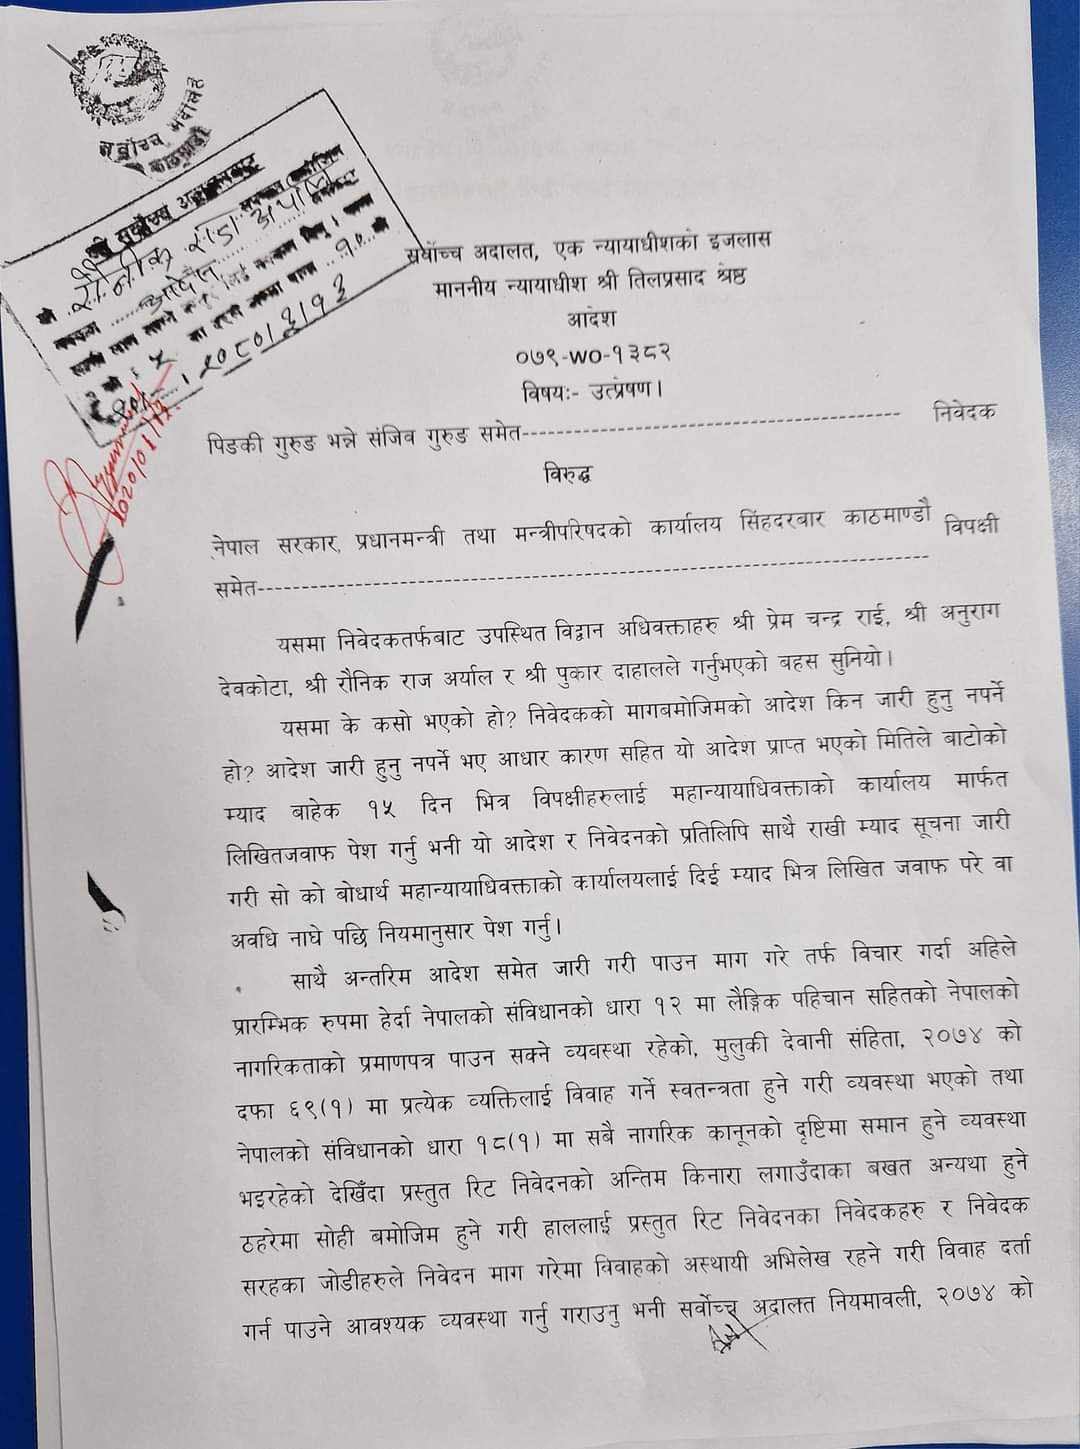 सर्वोच्च अदालत
काठमाडौं
श्री सर्वोच्च अदालतबाट
रौनीक राज अर्याल
२०८०।३।१३
सर्वोच्च अदालत, एक न्यायाधीशको इजलास
माननीय न्यायाधीश श्री तिलप्रसाद श्रेष्ठ
आदेश
०७९-WO-१३८२
विषयः- उत्प्रेषण।
पिङकी गुरुङ भन्ने संजिव गुरुङ समेत---------------------------------------- निवेदक
विरुद्ध
नेपाल सरकार, प्रधानमन्त्री तथा मन्त्रीपरिषदको कार्यालय सिंहदरबार काठमाण्डौ विपक्षी
समेत------------------------------------------------------------------------
यसमा निवेदकतर्फबाट उपस्थित विद्वान अधिवक्ताहरु श्री प्रेम चन्द्र राई, श्री अनुराग
देवकोटा, श्री रौनिक राज अर्याल र श्री पुकार दाहालले गर्नुभएको बहस सुनियो।
यसमा के कसो भएको हो? निवेदकको मागबमोजिमको आदेश किन जारी हुनु नपर्ने
हो? आदेश जारी हुनु नपर्ने भए आधार कारण सहित यो आदेश प्राप्त भएको मितिले बाटोको
म्याद बाहेक १५ दिन भित्र विपक्षीहरुलाई महान्यायाधिवक्ताको कार्यालय मार्फत
लिखितजवाफ पेश गर्नु भनी यो आदेश र निवेदनको प्रतिलिपि साथै राखी म्याद सूचना जारी
गरी सो को बोधार्थ महान्यायाधिवक्ताको कार्यालयलाई दिई म्याद भित्र लिखित जवाफ परे वा
अवधि नाघे पछि नियमानुसार पेश गर्नु।
साथै अन्तरिम आदेश समेत जारी गरी पाउन माग गरे तर्फ विचार गर्दा अहिले
प्रारम्भिक रुपमा हेर्दा नेपालको संविधानको धारा १२ मा लैङ्गिक पहिचान सहितको नेपालको
नागरिकताको प्रमाणपत्र पाउन सक्ने व्यवस्था रहेको, मुलुकी देवानी संहिता, २०७४ को
दफा ६९(१) मा प्रत्येक व्यक्तिलाई विवाह गर्ने स्वतन्त्रता हुने गरी व्यवस्था भएको तथा
नेपालको संविधानको धारा १८(१) मा सबै नागरिक कानूनको दृष्टिमा समान हुने व्यवस्था
भइरहेको देखिँदा प्रस्तुत रिट निवेदनको अन्तिम किनारा लगाउँदाका बखत अन्यथा हुने
ठहरेमा सोही बमोजिम हुने गरी हाललाई प्रस्तुत रिट निवेदनका निवेदकहरु र निवेदक
सरहका जोडीहरुले निवेदन माग गरेमा विवाहको अस्थायी अभिलेख रहने गरी विवाह दर्ता
गर्न पाउने आवश्यक व्यवस्था गर्नु गराउनु भनी सर्वोच्च अदालत नियमावली, २०७४ को